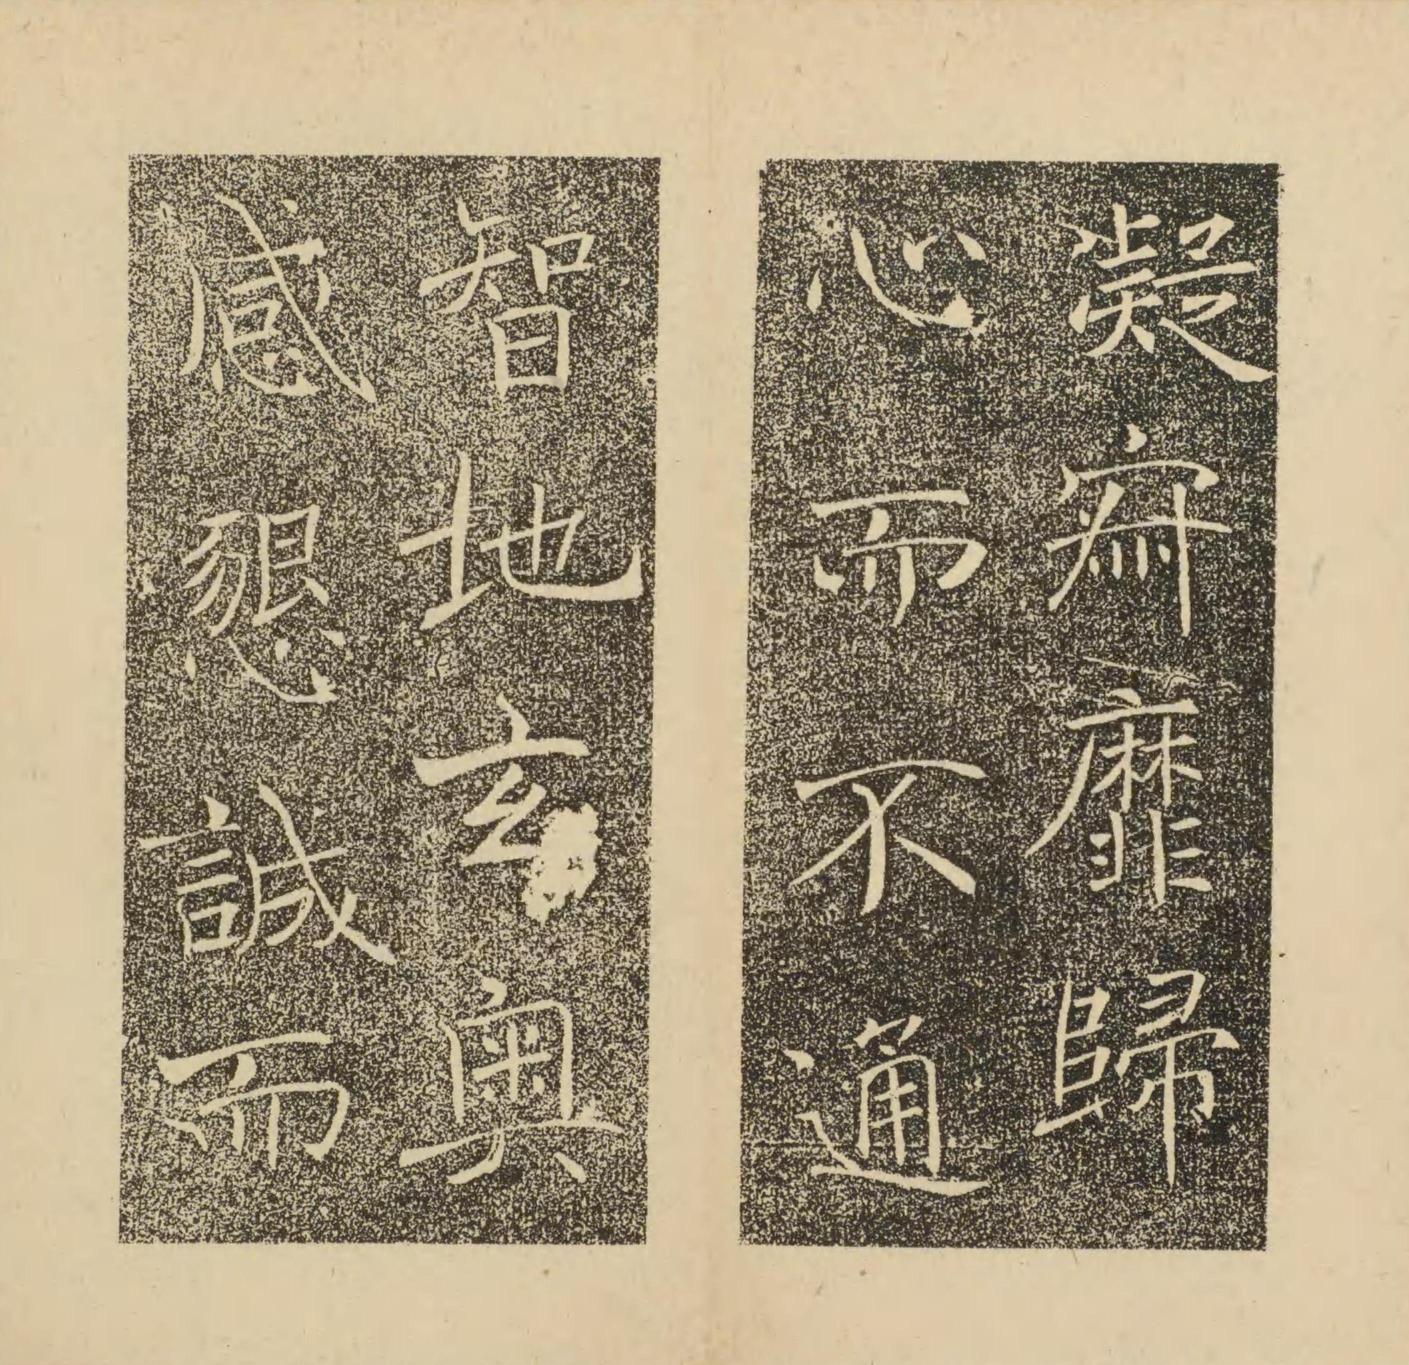 凝寂靡歸
心而不通
智地玄奧
感懇誠而